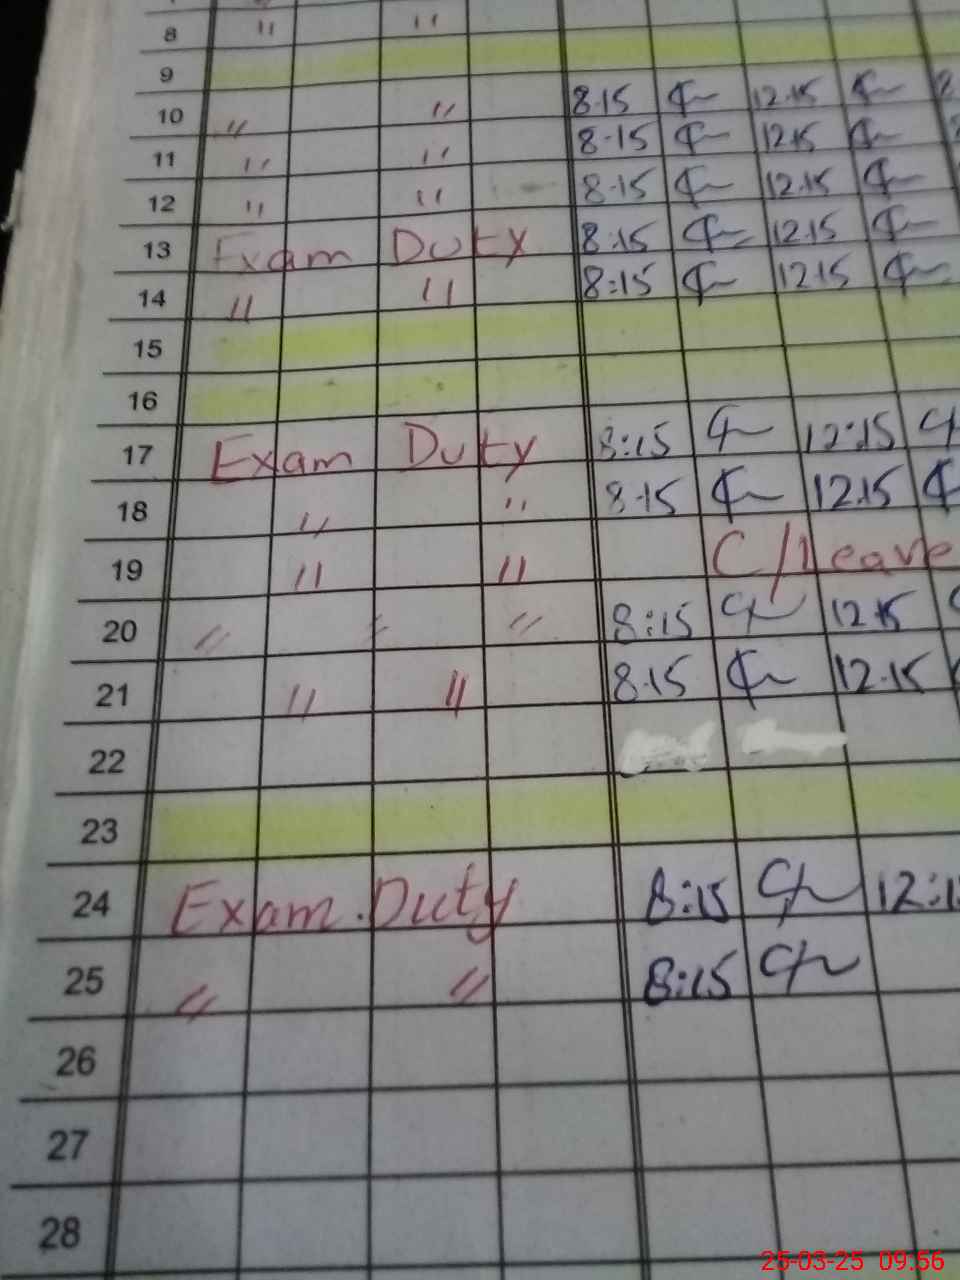 8 " "
9
10 " " 8.15 12.15
11 " " 8.15 12.15
12 " " 8.15 12.15
13 Exam Duty 8:15 12.15
14 " " 8:15 12.15
15
16
17 Exam Duty 8:15 12:15
18 " " 8.15 12.15
19 " " C/Leave
20 " " 8:15 12.15
21 " " 8.15 12.15
22
23
24 Exam Duty 8:15
25 " " 8:15
26
27
28
25-03-25 09:56